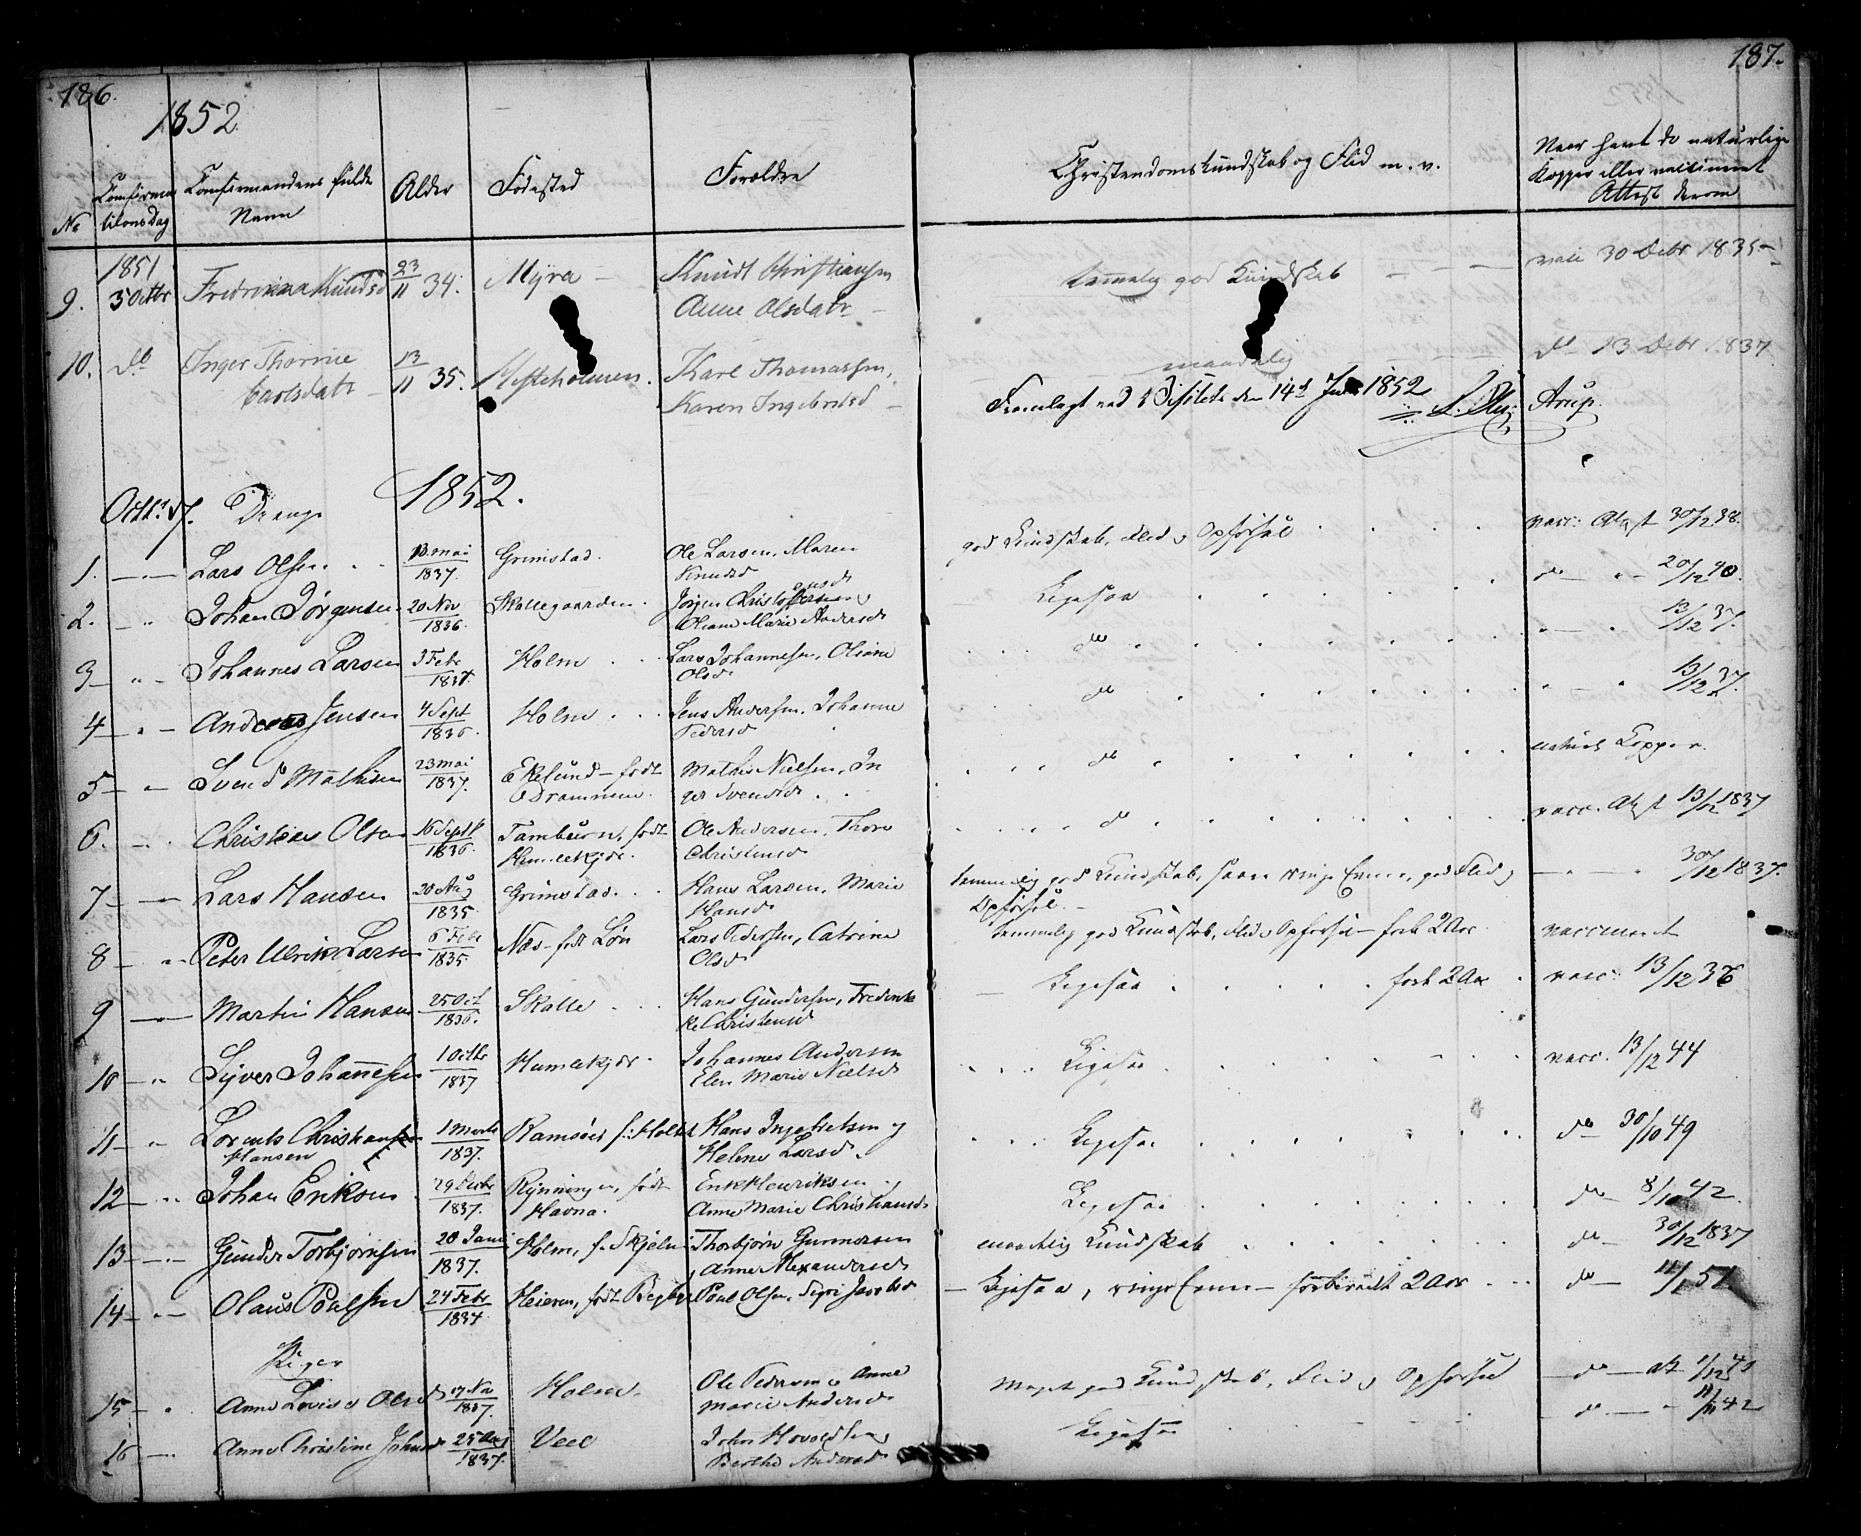 186.
187.
1852
No
Confirma
tionsdag
Confirmandens fulde
Navn
Alder
Fødested
Forældre
Christendomskundskab og Flid m. v.
Naar havt de naturlige
Kopper eller vaccineret
Attest derom
1851
9. 5 Octbr Fredrikka Knudsd 23/11 34. Myra – Knudt Christiansen
Anne Olsdatr –
temmelig god Kundskab – – – vacc 30 Decbr 1835 –
10. do Inger Thorine
Carlsdatr – 13/11 35. Hesteholmen. Karl Thomassen,
Karen Ingebretsd –
maadelig do 13 Decbr 1837
Fremlagt ved Visitats den 14de 1852 Arup.
Octbr 17. Drenge 1852.
1. Lars Olsen 13 mai
1837. Grimstad. Ole Larsen, Maren
Knudsd god Kundskab, Flid og Opførsel vacc. Attest 30/12 38.
2. Johan Jørgensen 20 Nov
1836. Skallegaarden. Jørgen Christoffersen
Oliane Marie Andersd Ligesaa do 20/12 40.
3 Johannes Larsen 3 Febr
1837. Holm Lars Johannesen, Oliane
Olsd do 13/12 37.
4 Andreas Jensen 4 Sept
1836. Holm Jens Andersen, Johanne
Pedersd do 13/12 37.
5 Svend Mathisen 23 mai
1837. Ekelund – født
Drammen. Mathis Nielsen, In
ger Svendsd do naturl Kopper.
6. Christian Olsen 16 Septb
1836. født
Humlekjær. Ole Andersen, Thore
Christensd do vacc. Attest 13/12 1837
7 Lars Hansen 20 Aug
1835. Grimstad. Hans Larsen, Marie
Hansd temmelig god Kundskab, ringe Evner, god Flid og
Opførsel – 30/12 1837.
8 Peter Ulrik Larsen 6 Febr
1835 Næs – født Løn Lars Pedersen, Catrine
Olsd temmelig god Kundskab, Flid og Opførsel – forb 2 Aar vaccineret
9 Martin Hansen 25 Oct
1836. Skalle Hans Gundersen, Frederik
ke Christensd Ligesaa forb 2 Aar vacc. 13/12 36
10 Syver Johannesen 1 Octbr
1837 Humlekjær Johannes Andersen
Elen Marie Nielsd Ligesaa vacc. 13/12 44
11 Lorents Christian
Hansen 1 Marts
1837. Ramsøes f. Holte Hans Ingebretsen og
Helene Larsd. Ligesaa do 30/10 49
12 Johan Eriksen 29 Decbr
1837. født
Havna. Erik Henriksen
Anne Marie Christiansd Ligesaa do 8/10 42.
13 Gunder Torbjørnsen 20 Janu
1837. Holm, f. Skjeln Thorbjørn Gunnersen
Anne Alexandersd maadelig Kundskab do 30/12 1837
14 Olaus Poulsen 24 Febr
1834 Heieren, født Poul Olsen, Sigri Jacobsd Ligesaa, ringe Evner – forberedt 2 Aar do 51.
Piger
15 Anne Lovise Olsd 17 No
1837. Holm Ole Pedersen Anne
Marie Andersd Meget god Kundskab, Flid og Opførsel do at
16 Anne Christine Johnsd 25 Aug
1837. Veel John Hovoldsen
Berthe Andersd Ligesaa do 42